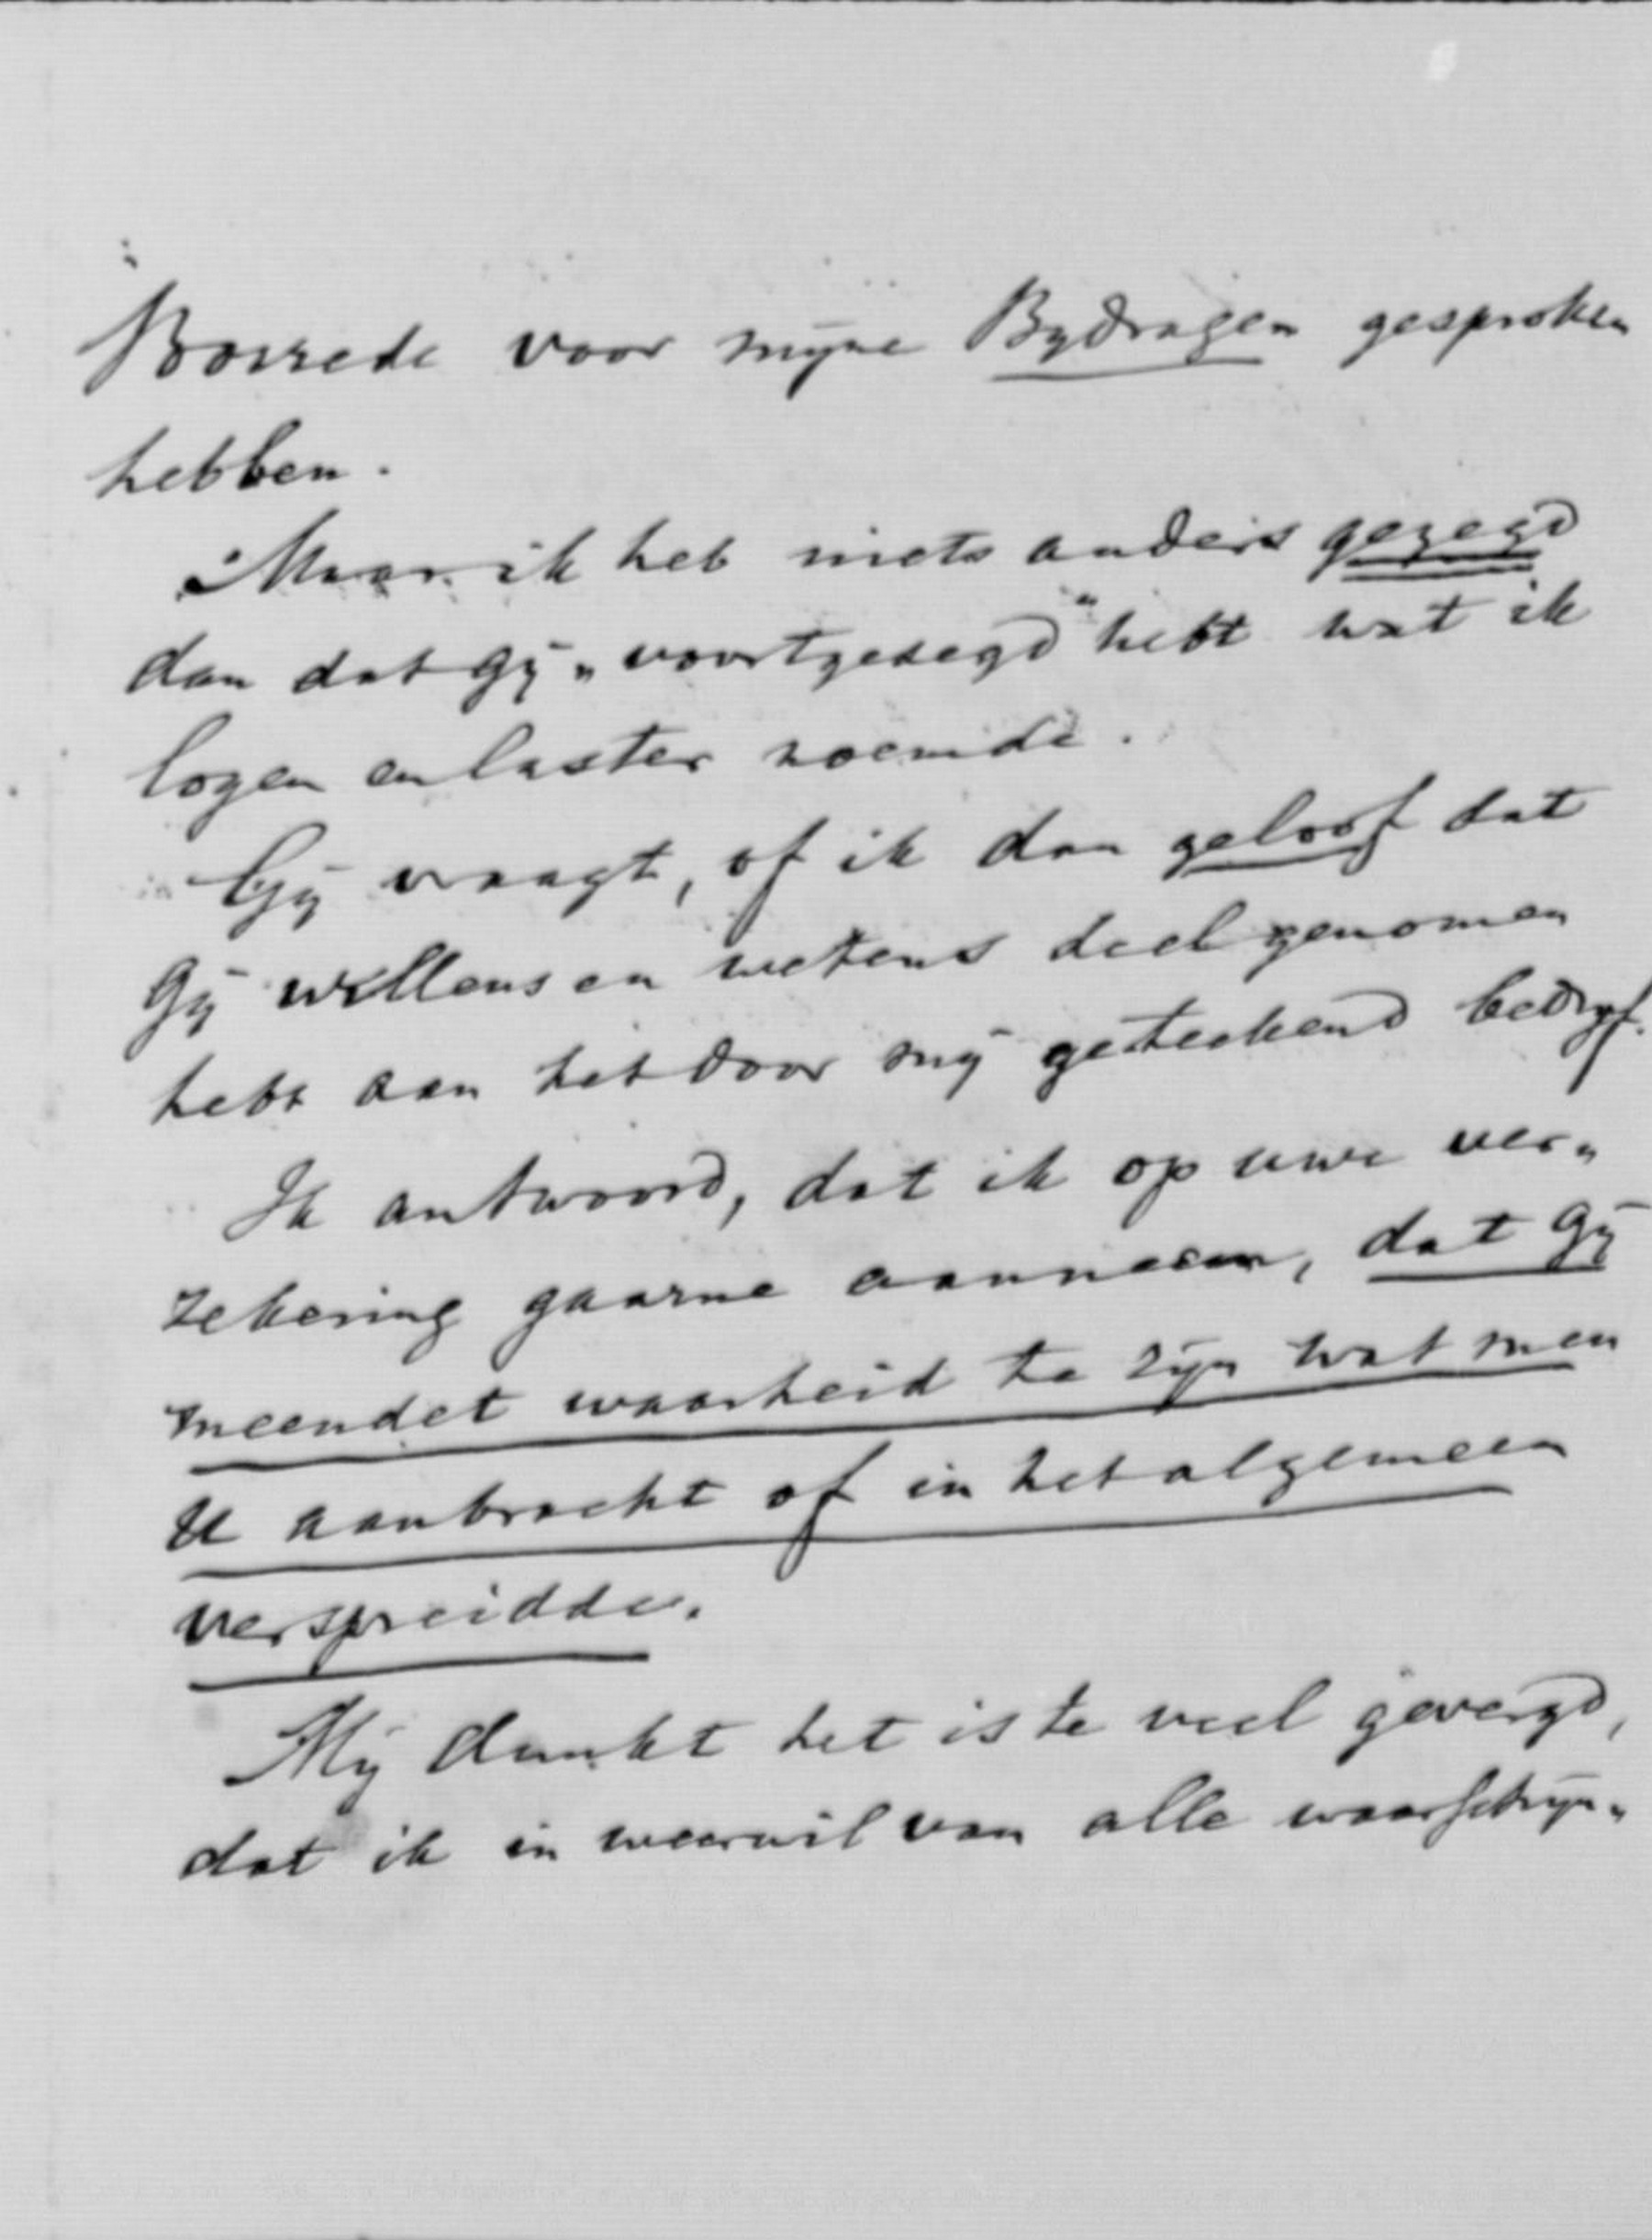 Voorrede voor mijne Bydragen gesproken
hebben.
Maar ik heb niets anders gezegd
dan dat gij „voortgezegd" hebt wat ik
logen en laster noemde.
Gij vraagt, of ik dan geloof dat
gij willens en wetens deel genomen
hebt aan het door mij geteekend bedryf.
Ik antwoord, dat ik op uwe ver„
zekering gaarne aanneem, dat gij
meendet waarheid te zijn wat men
U aanbracht of in het algemeen
verspreidde.
Mij dunkt het is te veel gevergd,
dat ik in weerwil van alle waarschijn„